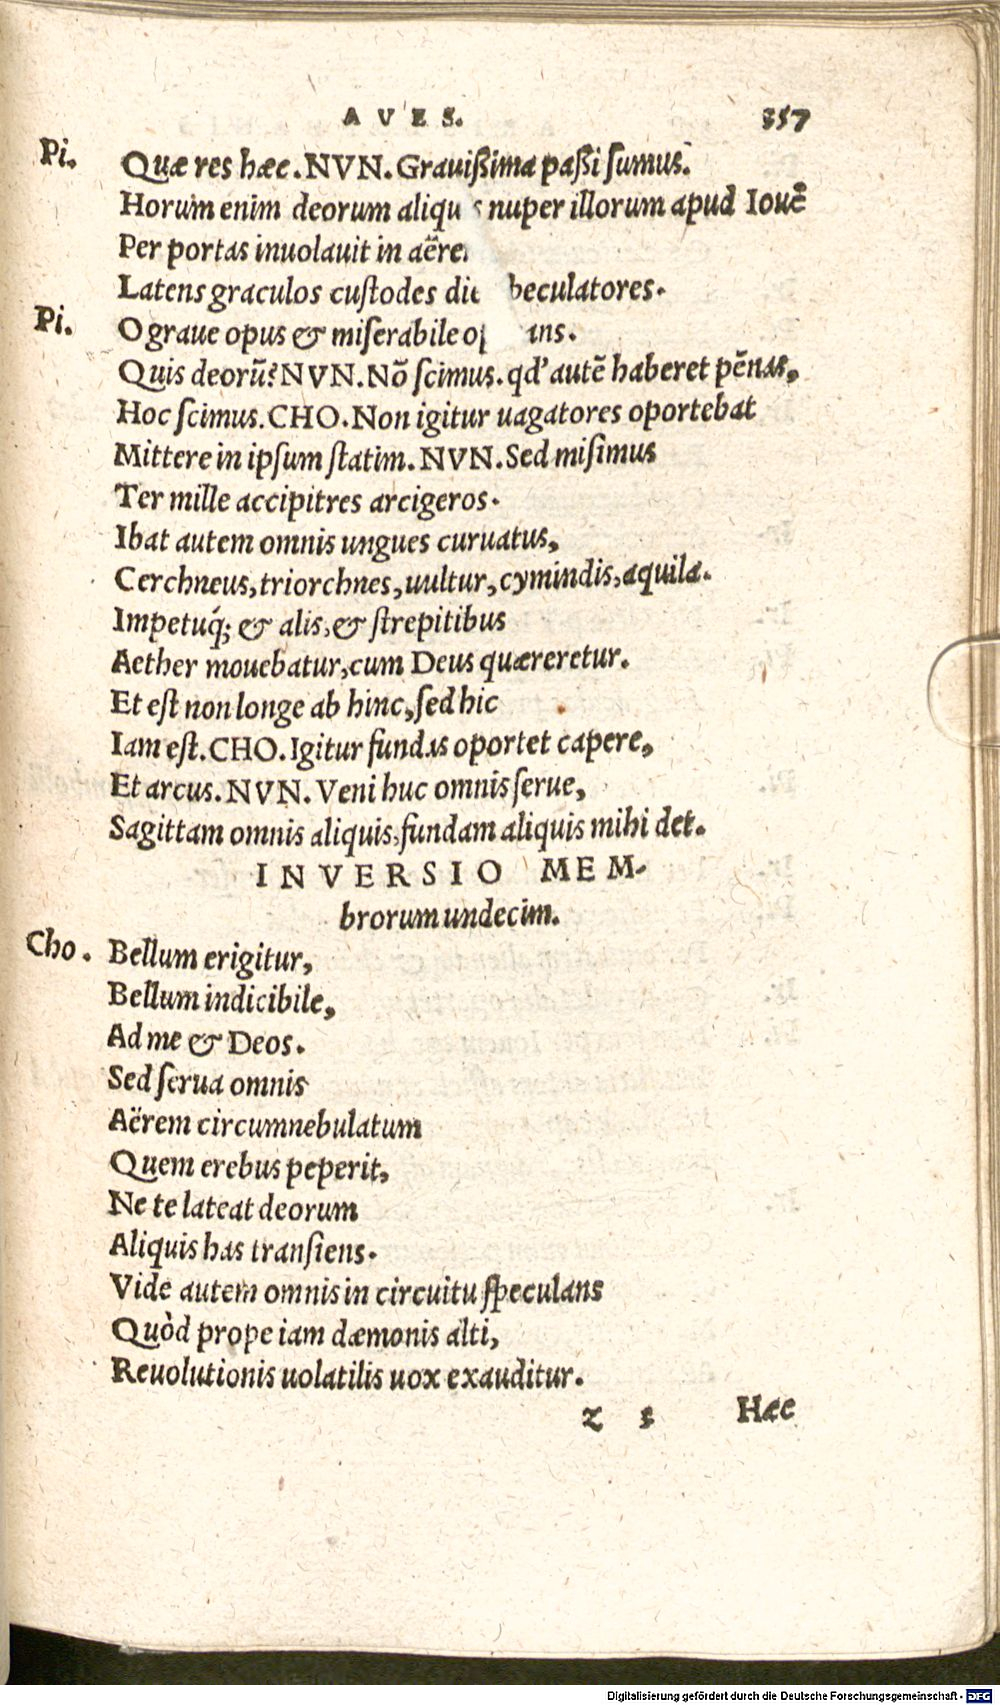 AVES. 357
Pi. Quæ res hæc. NVN. Grauißima paßi sumus.
Horum enim deorum nuper illorum apud Iouē
Per portas inuolauit in
Latens graculos custodes
Pi. O graue opus & miserabile
Quis deorū? NVN. Nō scimus. qd' autē haberet pēnas,
Hoc scimus. CHO. Non igitur uagatores oportebat
Mittere in ipsum statim. NVN. Sed misimus
Ter mille accipitres arcigeros.
Ibat autem omnis ungues curuatus,
Cerchneus, triorchnes, uultur, cymindis, aquila.
Impetuq́; & alis, & strepitibus
Aether mouebatur, cum Deus quæreretur.
Et est non longe ab hinc, sed hic
Iam est. CHO. Igitur fundas oportet capere,
Et arcus. NVN. Veni huc omnis serue,
Sagittam omnis aliquis, fundam aliquis mihi det.
INVERSIO MEM-
brorum undecim.
Cho. Bellum erigitur,
Bellum indicibile,
Ad me & Deos.
Sed serua omnis
Aërem circumnebulatum
Quem erebus peperit,
Ne te lateat deorum
Aliquis has transiens.
Vide autem omnis in circuitu speculans
Quòd prope iam dæmonis alti,
Reuolutionis uolatilis uox exauditur.
z 3 Hæc
Digitalisierung gefördert durch die Deutsche Forschungsgemeinschaft - DFG